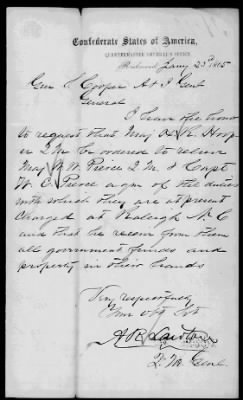 Confederate States of America,
QUARTERMASTER GENERAL'S OFFICE,
Richmond Jany 23d 1865
Gen S. Cooper A & I Genl
General
I have the honor
to request that Maj
er Q M be ordered to relieve
Maj W W Peirce Q. M & Capt
W C Peirce a qm of the duties
with which they are at present
charged at Raleigh N C
and that he receive from them
all government funds and
property in their hands
Very respectfully
Your obt Svt
A R Lawton
Q. Mr Genl